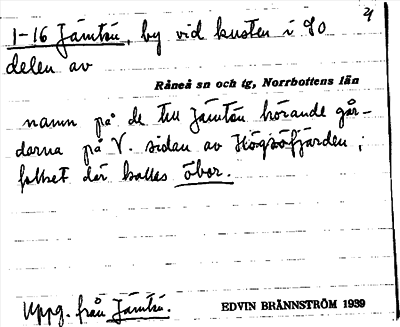 1-16 Jämtön, by vid kusten i SO
delen av
Råneå sn och tg, Norrbottens län
namn på de till Jämtön hörande går-
darna på V. sidan av Högsöfjärden;
folket där kallas öbor.
Uppg. från Jämtön.
EDVIN BRÄNNSTRÖM 1939